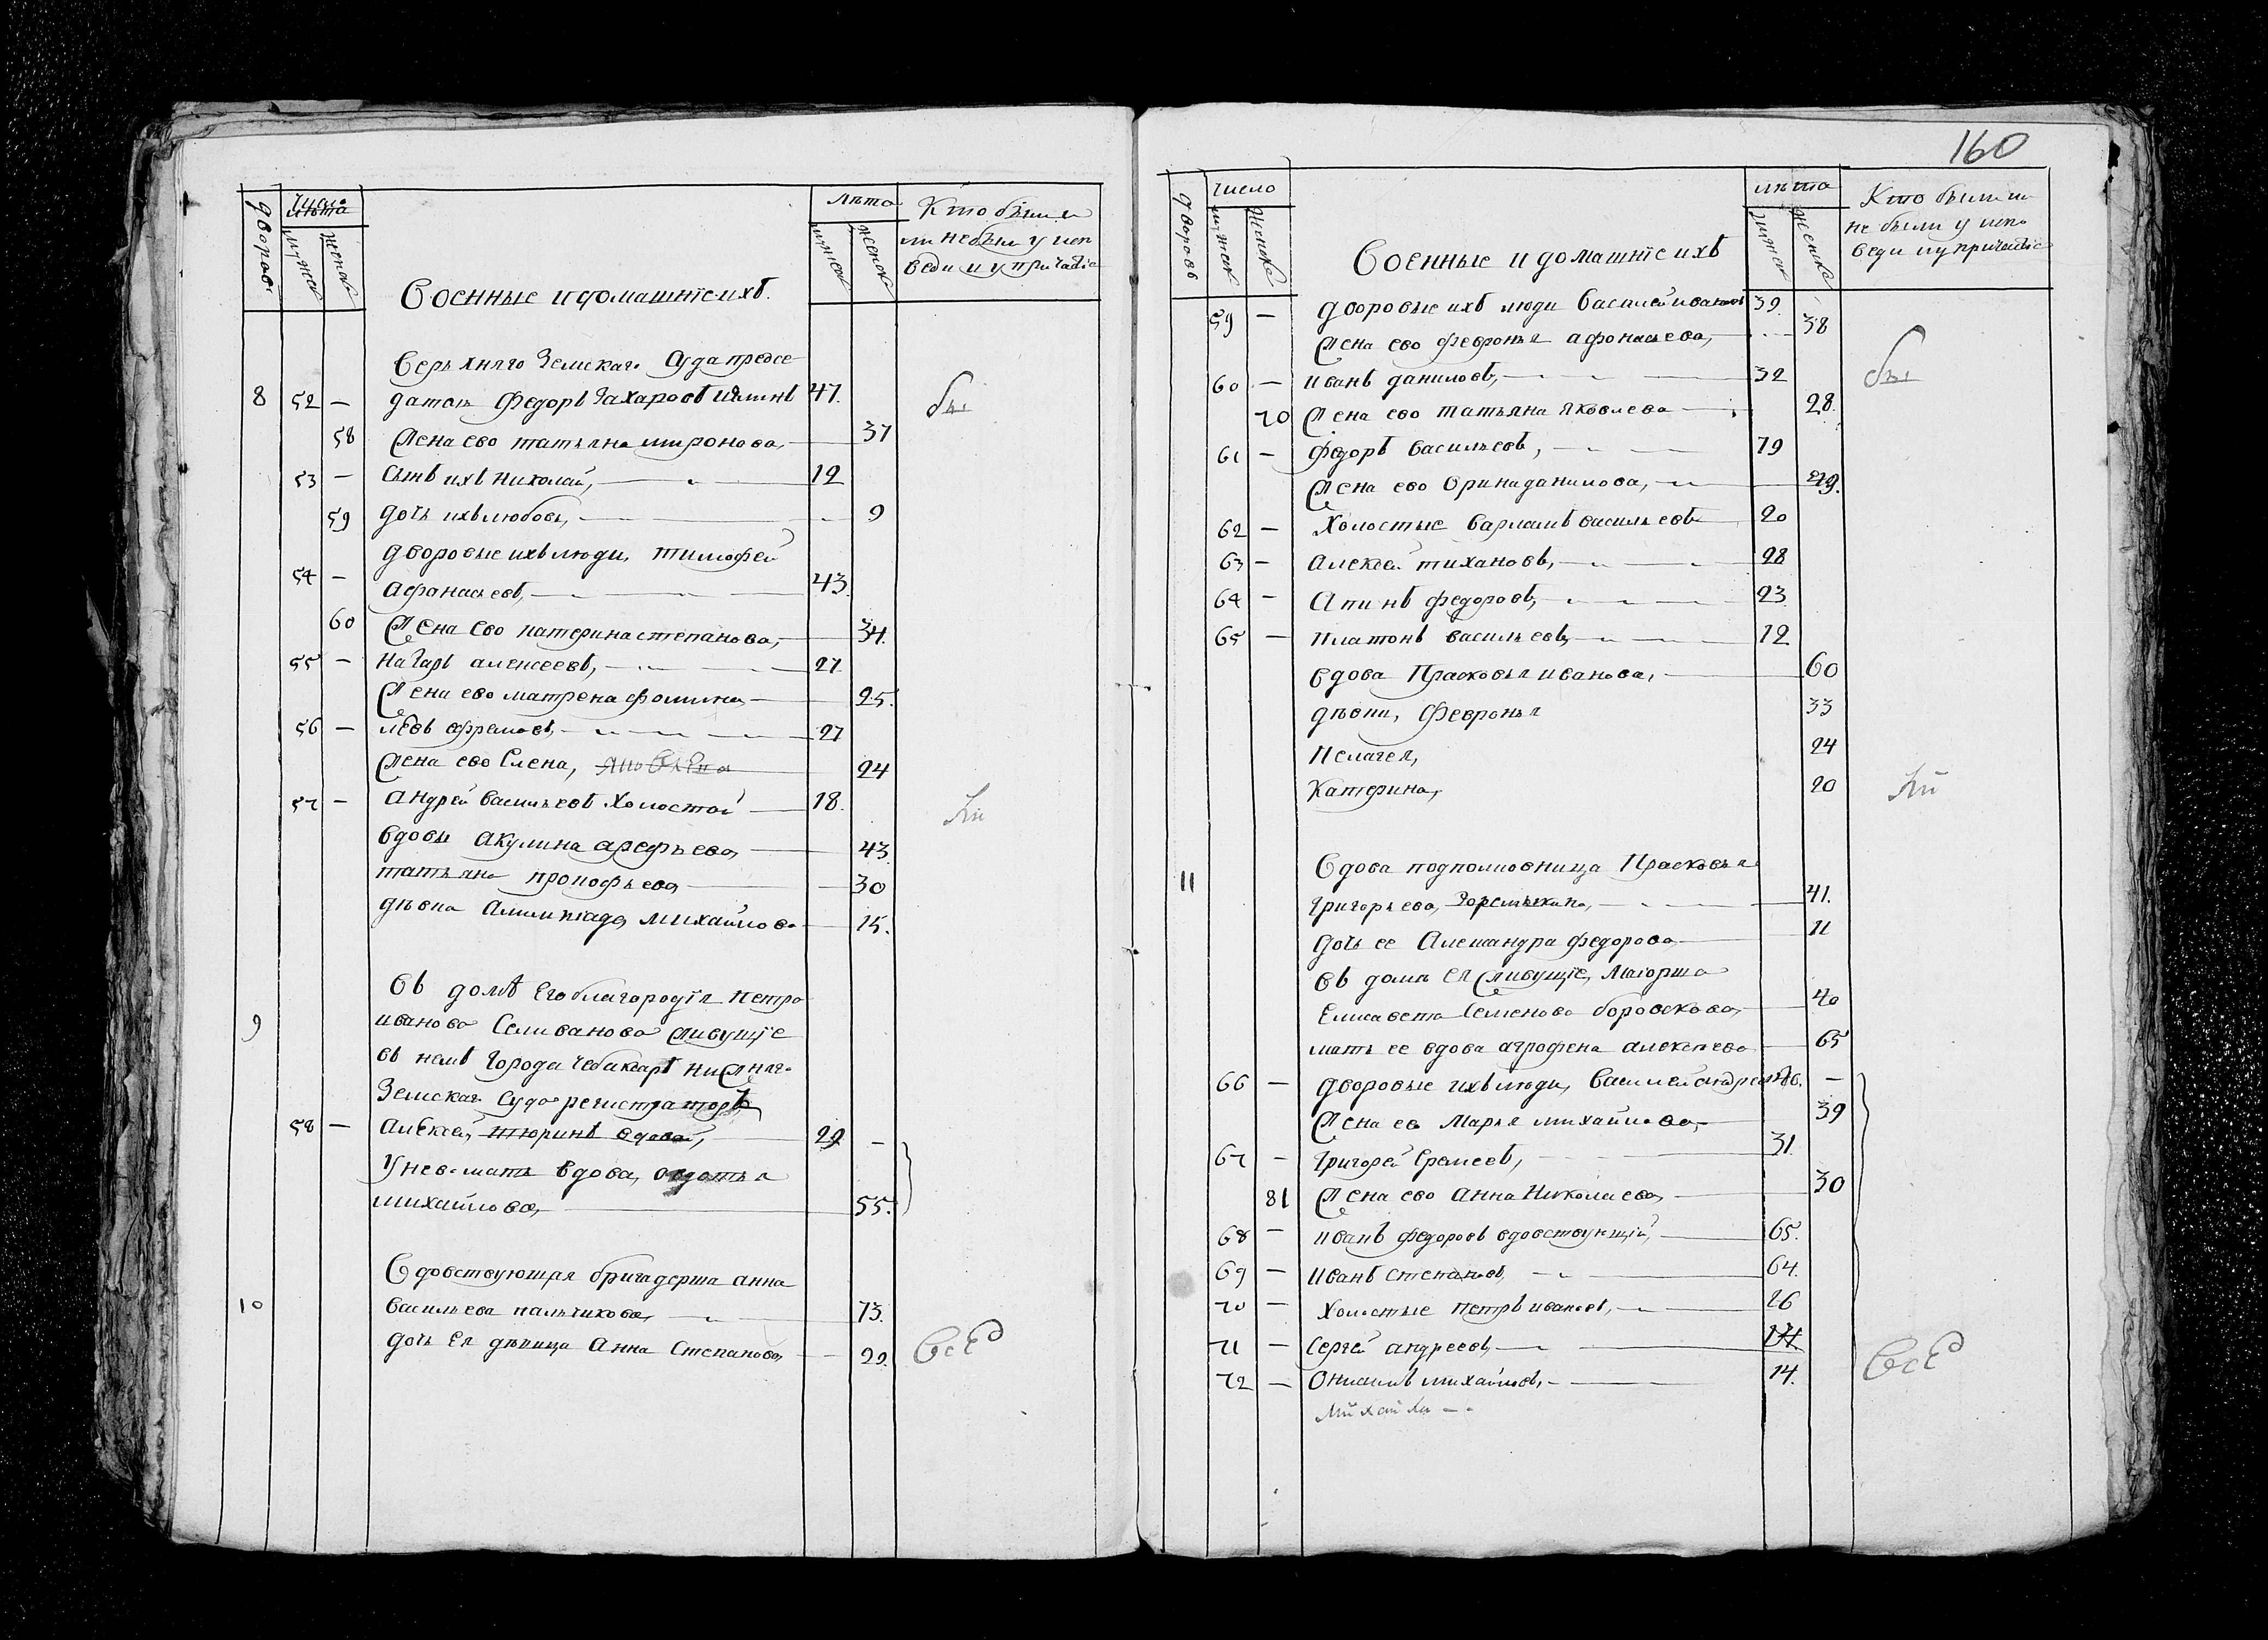 дворовъ
Число
лѣта
мужск
женск
Военные и домашніе ихъ.
лѣта
мужеск
женск
Кто были и
ли небыли у испо
веди и у причастіе
Верхняго Земскаго Суда предсе
8 52 — датель Федоръ Захаровъ 47.
58 Жена ево татьяна миронова, 37
53 — сынъ ихъ Николай, 12
59 дочь ихъ любовь, 9
дворовые ихъ люди, тимофей
54 — афонасьевъ, 43
60 Жена ево катерина степанова, 34.
55 — Назаръ алексеевъ, 27
Жена ево матрена фомина 25.
56 — левъ ефремовъ, 27
Жена ево Елена, 24
57 — андрей васильевъ холостой 18.
вдовы акулина арефьева, 43
татьяна прокофьева 30
дѣвка михайлова 15.
Въ домѣ Его благородія петра
9 иванова Селиванова живущіе
въ немъ города чебаксаръ нижняго
Земскаго Суда регистраторъ
58 — алексей тюринъ вдовой, 29 —
у нево мать вдова, авдотья
михайлова, 55.
Вдовствующая бригадерша анна
10 васильева пальчикова, 73.
дочь Ея дѣвица Анна Степанова 29.
бы
ли
Всѣ
160
дворовъ
число
мужеск
женск
Военные и домашніе ихъ
лѣта
мужск
женск
Кто были и
не были у испо
веди и у причастіе
59 — дворовые ихъ люди василей ивановъ 39.
Жена ево февронья афонасьева, 38
60 — иванъ даниловъ, 32
70 Жена ево татьяна яковлева 28.
61 — федоръ васильевъ, 79
Жена ево орина данилова, 49.
62 — холостые варламъ васильевъ 20
63 — алексей тихановъ, 28
64 — федоровъ, 23
65 — платонъ васильевъ, 12
вдова Прасковья иванова, 60
дѣвки, февронья 33
пелагея, 24
катерина, 20
Вдова подполковница Прасковья
11 григорьева, Горемыкина, 41.
дочь ее Александра федорова 11
въ домѣ ея живущіе, маіорша
Елисавета Семенова боровскова, 40
мать ее вдова агрофена алексеева 65
66 — дворовые ихъ люди, василей андреевъ 36. —
Жена ево Марья михайлова, 39
67 — григорей Еремеевъ, 31.
81 Жена ево анна Николаева, 30
68 — иванъ федоровъ вдовствующій, 65.
69 — иванъ степановъ, 64.
70 — холостые петръ ивановъ, 26
71 — сергей андреевъ, 17
72 — онисимъ михайловъ, 14.
михайла
бы
ли
Всѣ